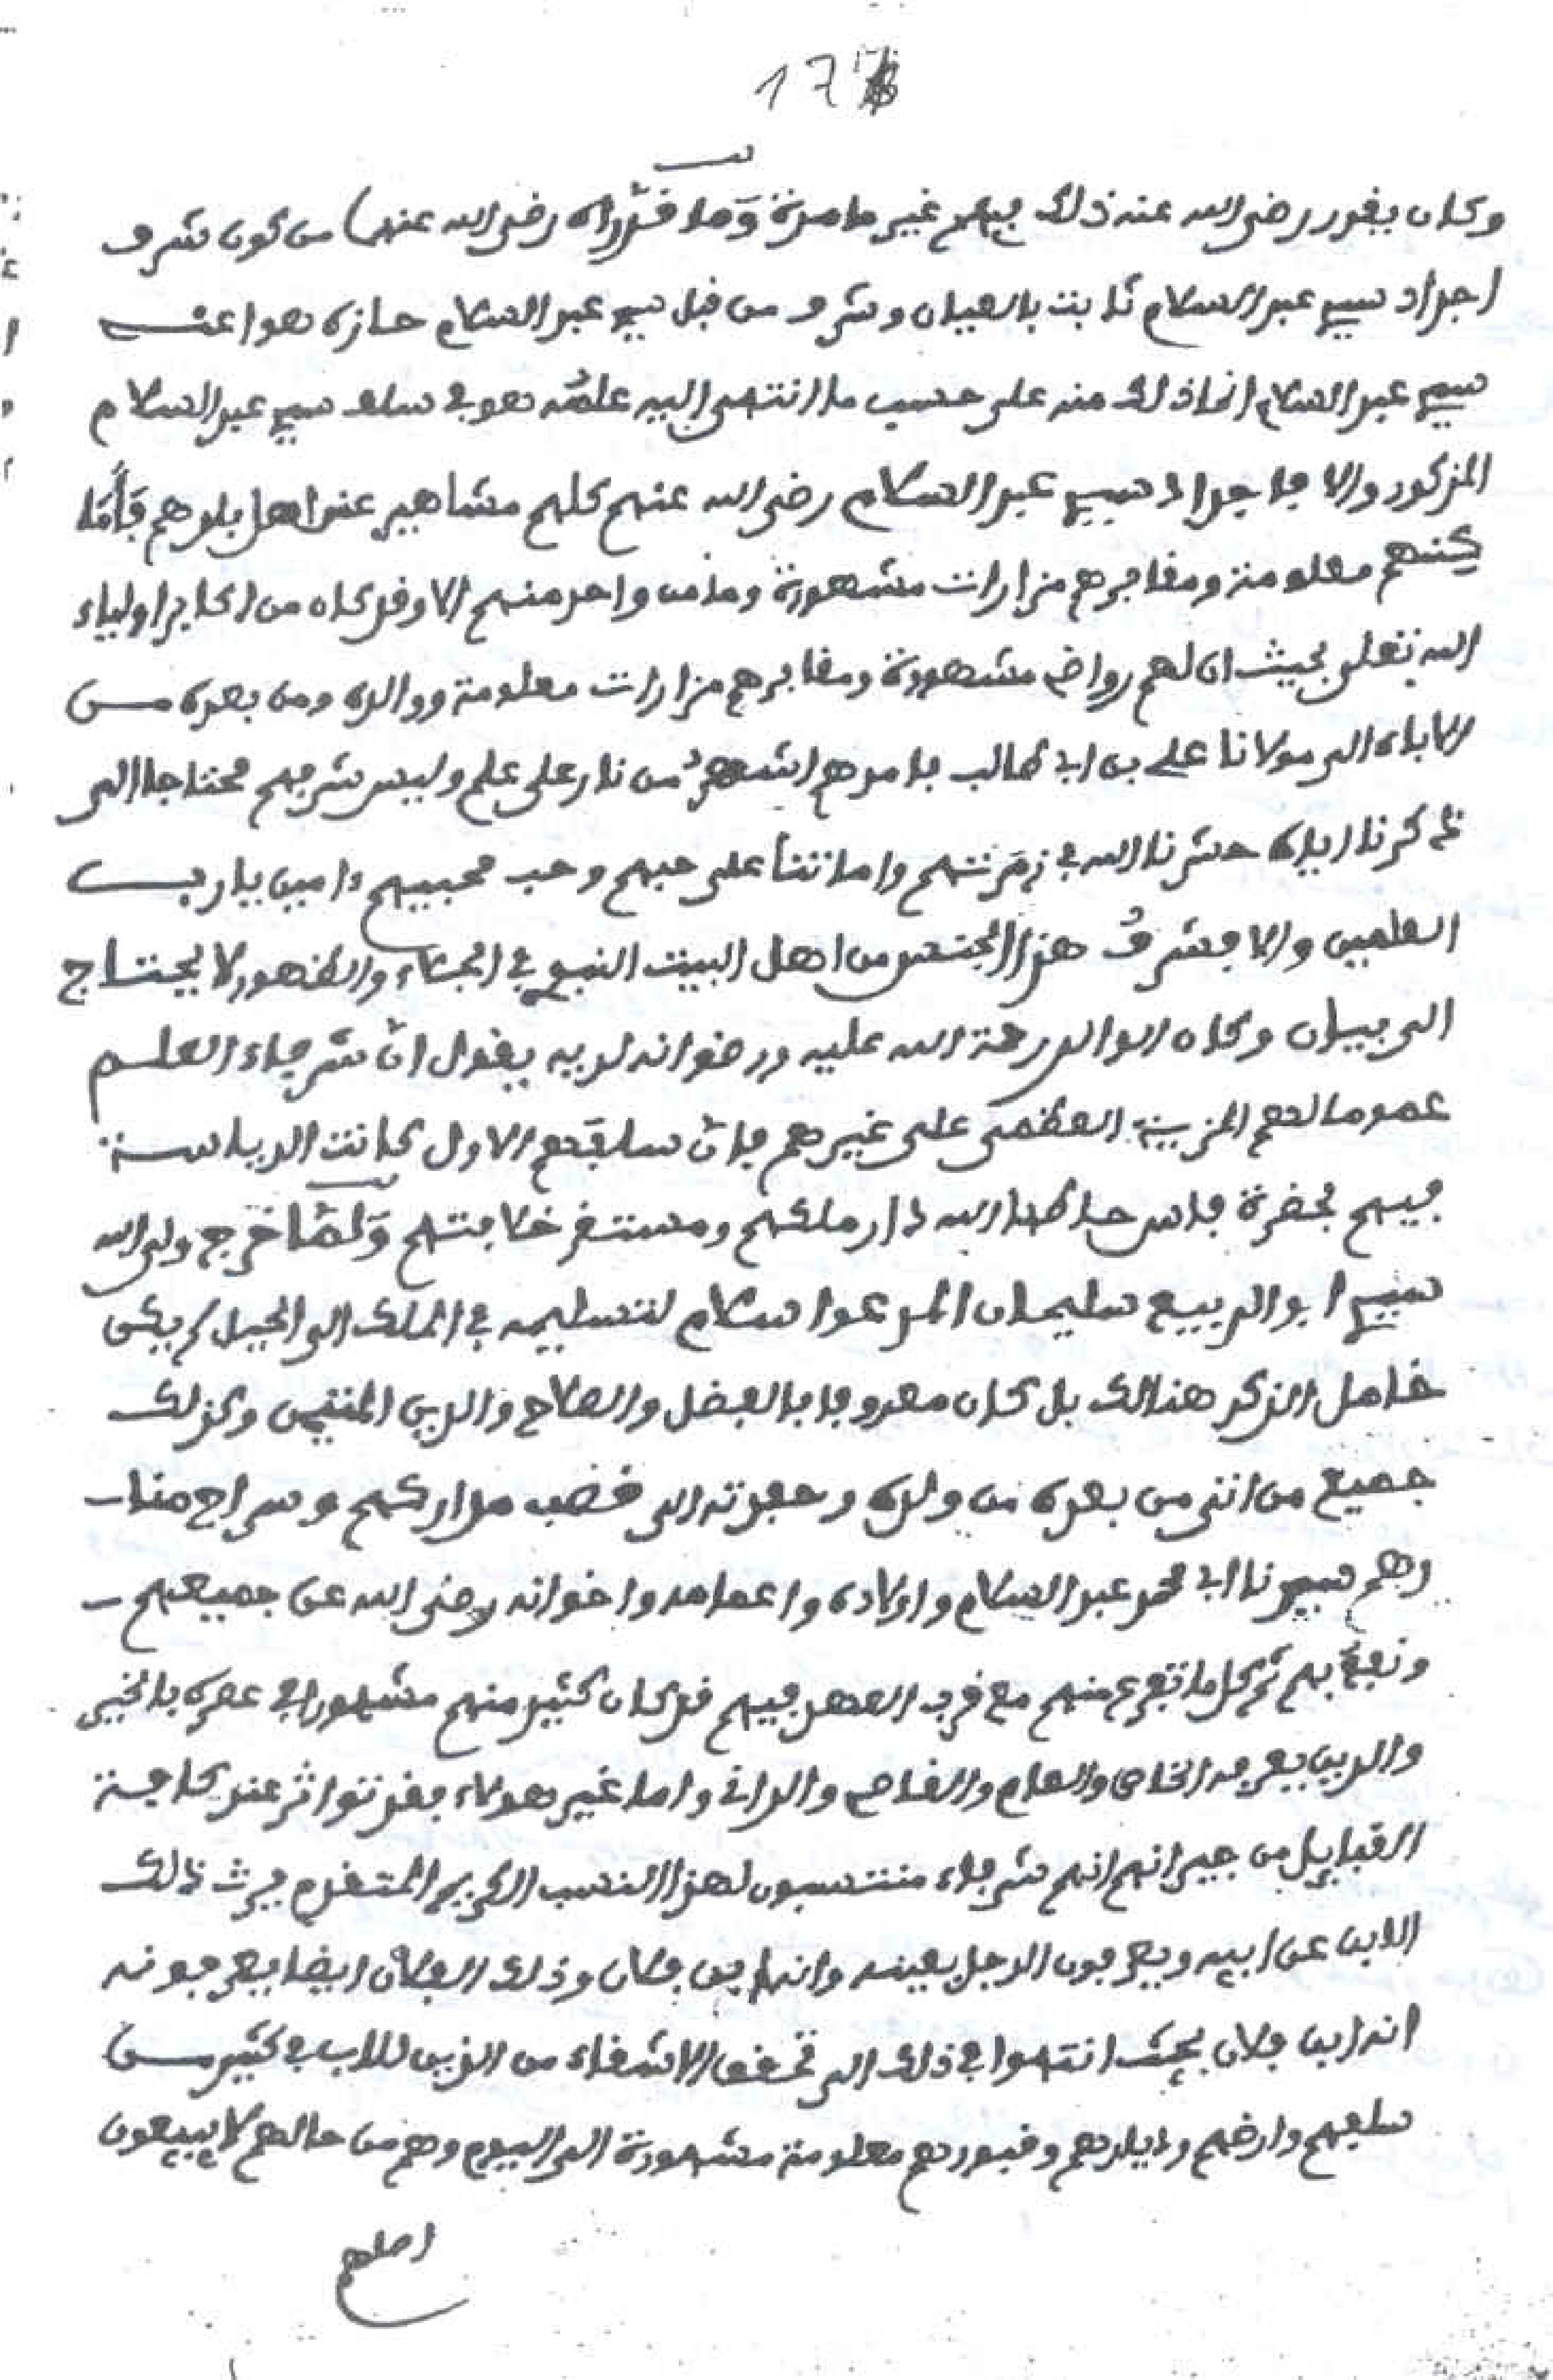 177
وكان يقول رضي الله عنه ذلك فيهم غير ما مرة وما قرراه رضي الله عنهما من كون شرف
اجداد سيدي عبد السلام ثابت بالعيان وشرف من قبل سيدي عبد السلام حازه هو اعني
سيدي عبد السلام انما ذلك منه على حسب ما انتهى اليه علمه هو في سلف سيدي عبد السلام
المذكور والا فاجداد سيدي عبد السلام رضي الله عنهم كلهم مشاهير عند اهل بلدهم فأما
كنهم معلومة ومقابرهم مزارات مشهورة وما من واحد منهم الا وقد كان من اكابر اولياء
الله تعلى بحيث ان لهم رواضي مشهورة ومقابرهم مزارات معلومة ووالده ومن بعده من
الاباء الى مولانا علي بن ابي طالب فامرهم اشهر من نار على علم وليس شرفهم محتاجا الى
ذكرنا اياه حشرنا الله في زمرتهم واماتنا على حبهم وحب محبيهم ءامين يا رب
العلمين والا فشرف هذا الجنس من اهل البيت النبوي في الجلاء والظهور لا يحتاج
الى بيان وكان الوالد رحمة الله عليه ورضوانه لديه يقول ان شرفاء العلم
عموما لهم المزية العظمى على غيرهم فان سلفهم الاول كانت الرياسة
فيهم بحضرة فاس حاطها الله دار ملكهم ومستقر خلافتهم ولما خرج ولي الله
سيدي ابو الربيع سليمان المدعو اسلام لتسليمه في الملك الى الجبل لم يكن
خامل الذكر هنالك بل كان معروفا بالفضل والصلاح والدين المتين وكذلك
جميع من اتى من بعده من ولده وحفدته الى قطب مداركهم وسراج منا
رهم سيدنا ابي محمد عبد السلام واولاده واعمامه واخوانه رضي الله عن جميعهم
ونفع بهم ثم كل ما تفرع منهم مع قرب العهد فيهم قد كان كثير منهم مشهورا في عصره بالخير
والدين يعرفه الخاص والعام والقاصي والداني واما غير هولاء فقد تواتر عند كافة
القبايل من جيرانهم انهم شرفاء منتسبون لهذا النسب الكريم المتقدم يرث ذلك
الابن عن ابيه ويعرفون الرجل بعينه وانه ابن فلان وذلك الفلان ايضا يعرفونه
انه ابن فلان بحيث انتهوا في ذلك الى تحقق الاشقاء من الذين للاب في كثير من
سلفهم وارضهم وديارهم وقبورهم معلومة مشهورة الى اليوم وهم من حالهم لا يبيعون
اصلهم